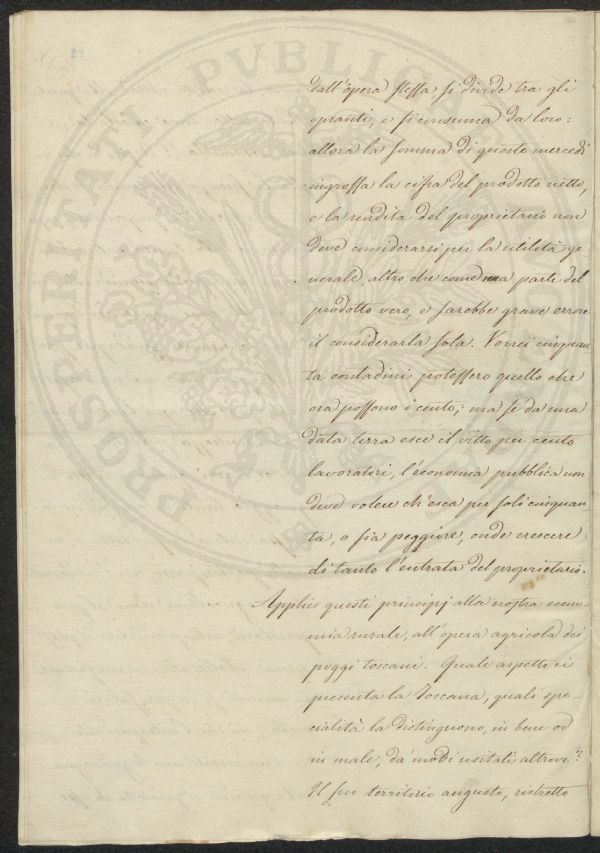 dall'opera stessa si divide tra gli
opranti, e si consuma da loro:
allora la somma di queste mercedi
ingrossa la cifra del prodotto netto,
e la rendita del proprietario non
deve considerarsi per la utilità ge-
nerale, altro che come una parte del
prodotto vero, e sarebbe grave errore
il considerarla sola. Vorrei cinquan
ta contadini potessero quello che
ora possono i cento; ma se da una
data terra esce il vitto per cento
lavoratori, l'economia pubblica non
deve volere ch'esca per soli cinquan-
ta, o sia peggiore, onde crescere
di tanto l'entrata del proprietario.
Applico questi principj alla nostra econo
mia rurale, all'opera agricola dei
poggi toscani. Quale aspetto ci
presenta la Toscana, quali spe-
cialità la distinguono, in bene od
in male, da' modi usitati altrove?
Il suo territorio angusto, ristretto
PROSPERITATI PUBLICAE